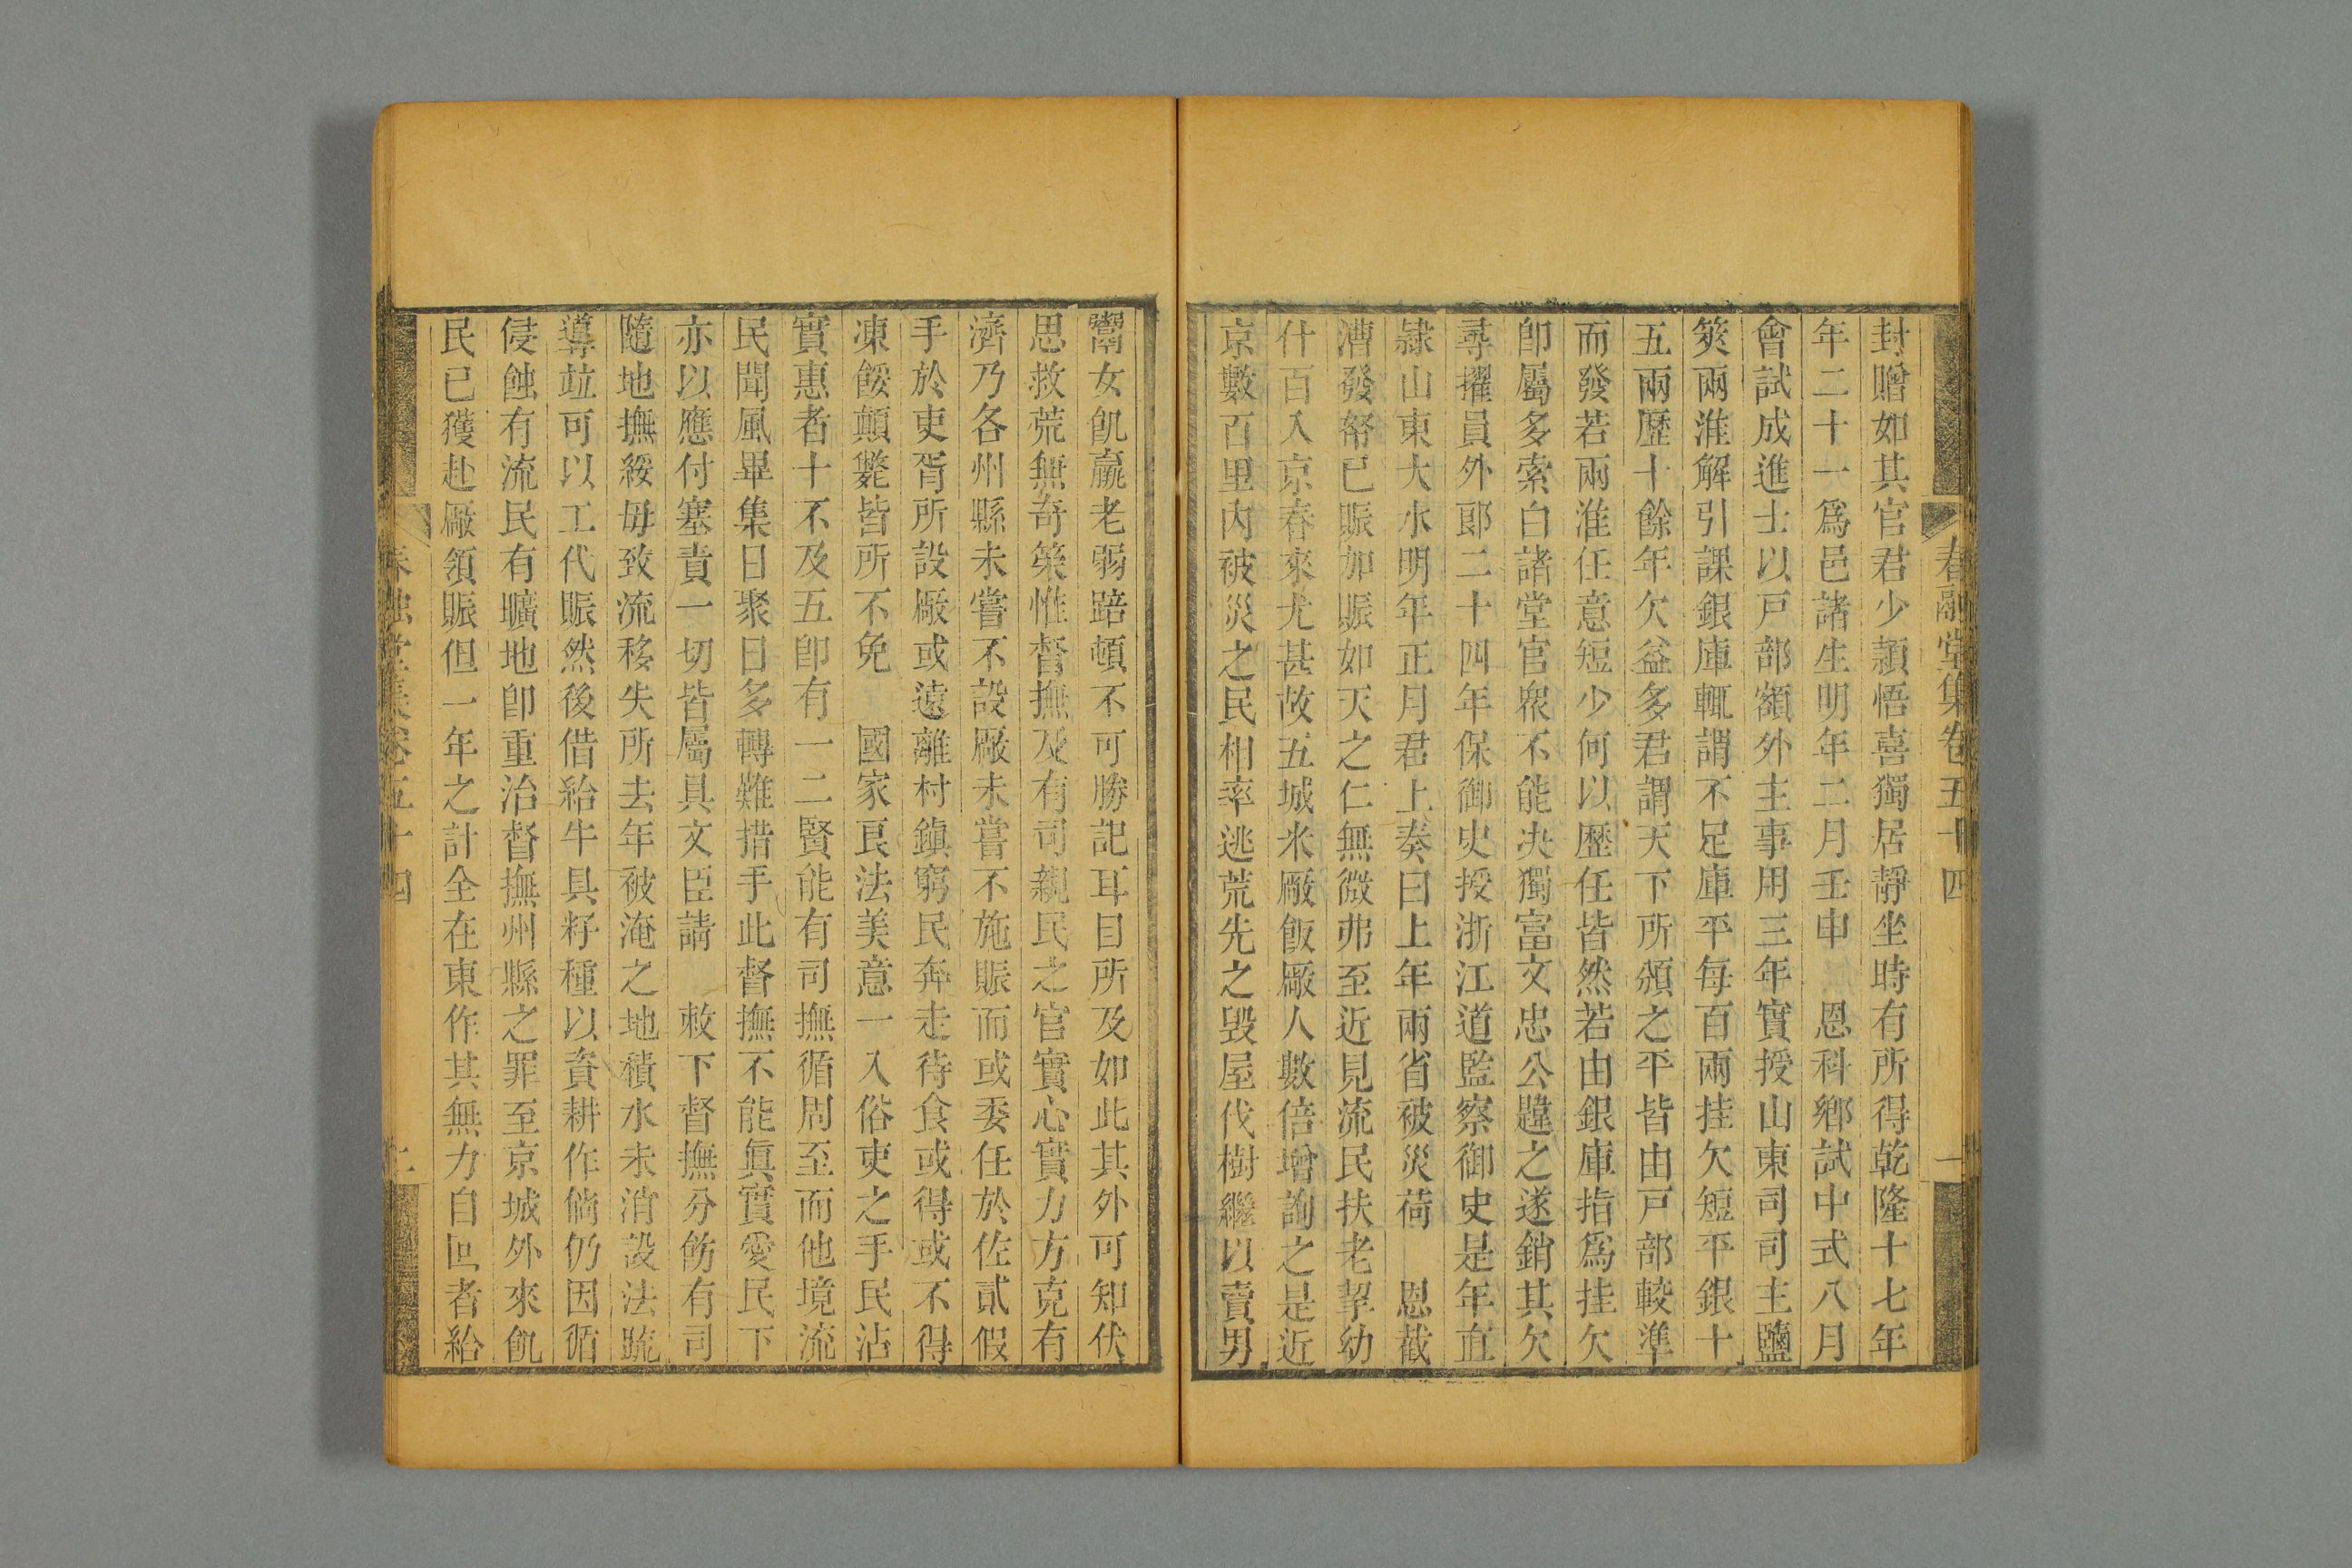 春融堂集卷五十四
一
封贈如其官君少穎悟喜獨居靜坐時有所得乾隆十七年
年二十一爲邑諸生明年二月壬申　恩科鄉試中式八月
會試成進士以戸部額外主事用三年實授山東司司主鹽
筴兩淮解引課銀庫輒謂不足庫平每百兩挂欠短平銀十
五兩歷十餘年欠益多君謂天下所頒之平皆由戸部較準
而發若兩淮任意短少何以歷任皆然若由銀庫指爲挂欠
卽屬多索白諸堂官衆不能决獨富文忠公韙之遂銷其欠
尋擢員外郞二十四年保御史授浙江道監察御史是年直
隷山東大水明年正月君上奏曰上年兩省被災荷　恩截
漕發帑已賑加賑如天之仁無微弗至近見流民扶老挈幼
什百入京春來尤甚故五城米厰飯厰人數倍增詢之是近
京數百里內被災之民相率逃荒先之毀屋伐樹繼以賣男
鬻女飢羸老弱踣頓不可勝記耳目所及如此其外可知伏
思救荒無奇筞惟督撫及有司親民之官實心實力方克有
濟乃各州縣未嘗不設厰未嘗不施賑而或委任於佐貳假
手於吏胥所設厰或遠離村鎮窮民奔走待食或得或不得
凍餒顛斃皆所不免　國家良法美意一入俗吏之手民沾
實惠者十不及五卽有一二賢能有司撫循周至而他境流
民聞風畢集日聚日多轉難措手此督撫不能眞實愛民下
亦以應付塞責一切皆屬具文臣請　敕下督撫分飭有司
隨地撫綏毋致流移失所去年被淹之地積水未消設法疏
導竝可以工代賑然後借給牛具籽種以資耕作倘仍因循
侵蝕有流民有曠地卽重治督撫州縣之罪至京城外來飢
民已獲赴厰領賑但一年之計全在東作其無力自回者給
春融堂集卷五十四